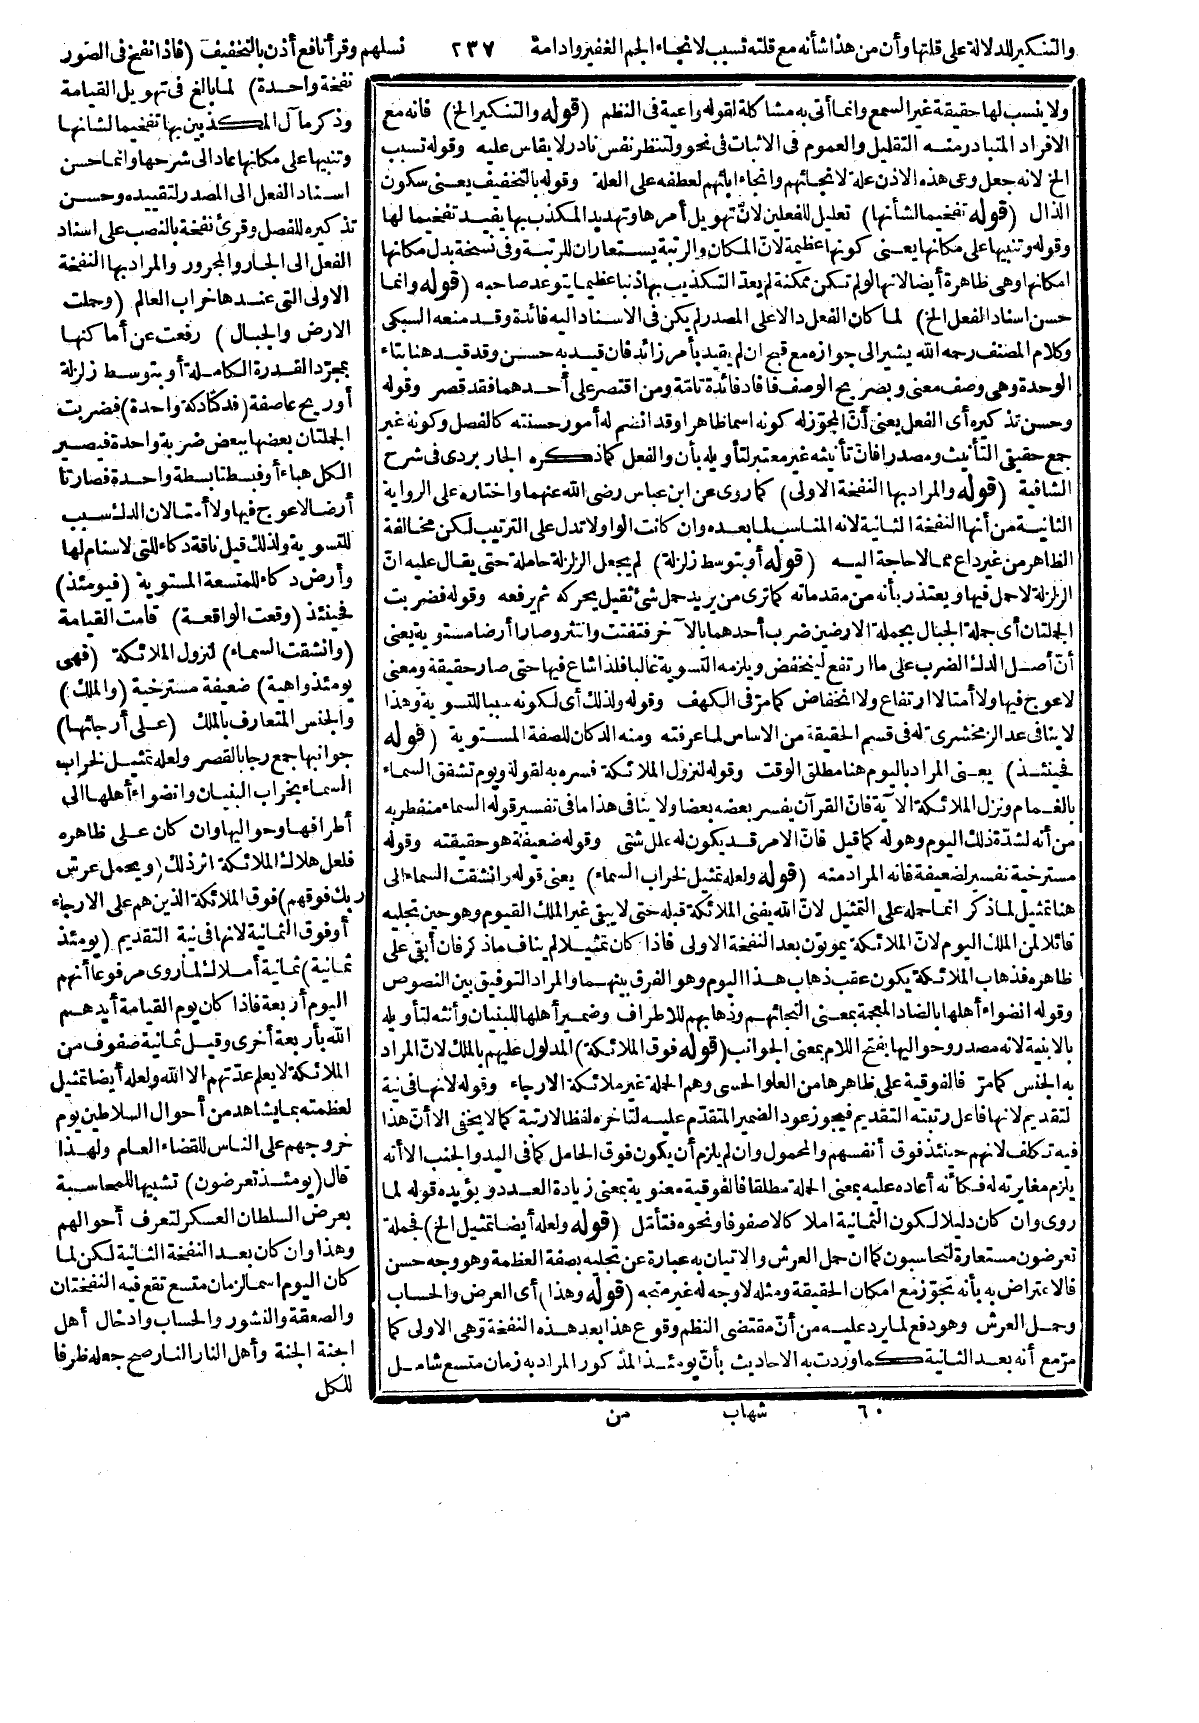 والتنكير للدلالة على قلتها وأن من هذا شأنه مع قلته تسبب لانجاء الجم الغفير وادامة ٢٣٧ نسلهم وقرأ نافع أذن بالتخفيف (فاذا نفخ فى الصور
نفخة واحدة) لما بالغ فى تهويل القيامة
وذكر مآل المكذبين بها تفخيما لشانها
وتنبيها على مكانها عاد الى شرحها وانما حسن
اسناد الفعل الى المصدر لتقييده وحسن
تذكيره للفصل وقرئ نفخة بالنصب على اسناد
الفعل الى الجار والمجرور والمراد بها النفخة
الاولى التى عندها خراب العالم (وحملت
الارض والجبال) رفعت عن أماكنها
بمجرّد القدرة الكاملة أو بتوسط زلزلة
أو ريح عاصفة (فدكّا دكة واحدة) فضربت
الجلتان بعضها ببعض ضربة واحدة فيصير
الكل هباء أو فبسطتا بسطة واحدة فصارتا
أرضا لا عوج فيها ولا أمتا لان الدك سبب
للتسوية ولذلك قيل ناقة دكاء للتى لا سنام لها
وأرض دكاء للمتسعة المستوية (فيومئذ)
فحينئذ (وقعت الواقعة) قامت القيامة
(وانشقت السماء) لنزول الملائكة (فهى
يومئذ واهية) ضعيفة مسترخية (والملك)
والجنس المتعارف بالملك (على أرجائها)
جوانبها جمع رجا بالقصر ولعله تمثيل لخراب
السماء بخراب البنيان وانضواء أهلها الى
أطرافها وحواليها وان كان على ظاهره
فلعل هلاك الملائكة اثر ذلك (ويحمل عرش
ربك فوقهم) فوق الملائكة الذين هم على الارجاء
أو فوق الثمانية لانها فى نية التقديم (يومئذ
ثمانية) ثمانية أملاك لما روى مرفوعا أنهم
اليوم أربعة فاذا كان يوم القيامة أيدهم
الله بأربعة أخرى وقيل ثمانية صفوف من
الملائكة لا يعلم عدّتهم الا الله ولعله أيضا تمثيل
لعظمته بما يشاهد من أحوال السلاطين يوم
خروجهم على الناس للقضاء العام ولهذا
قال (يومئذ تعرضون) تشبيها للمحاسبة
بعرض السلطان العسكر لتعرف أحوالهم
وهذا وان كان بعد النفخة الثانية لكن لما
كان اليوم اسما لزمان متسع تقع فيه النفختان
والصعقة والنشور والحساب وادخال أهل
الجنة الجنة وأهل النار النار صح جعله ظرفا
للكل
ولا ينسب لها حقيقة غير السمع وانما أتى به مشاكلة لقوله واعية فى النظم (قوله والتنكير الخ) فانه مع
الافراد المتبادر منه التقليل والعموم فى الاثبات فى نحو ولتنظر نفس نادر لا يقاس عليه وقوله تسبب
الخ لانه جعل وعى هذه الاذن علة لانجائهم وانجاء ابائهم لعطفه على العلة وقوله بالتخفيف يعنى سكون
الذال (قوله تفخيما لشأنها) تعليل للفعلين لانّ تهويل أمرها وتهديد المكذب بها يفيد تفخيما لها
وقوله وتنبيها على مكانها يعنى كونها عظيمة لانّ المكان والرتبة يستعاران للرتبة وفى نسخة بدل مكانها
امكانها وهى ظاهرة أيضا لانها لو لم تكن ممكنة لم يعدّ التكذيب بها ذنبا عظيما يتوعد صاحبه (قوله وانما
حسن اسناد الفعل الخ) لما كان الفعل دالا على المصدر لم يكن فى الاسناد اليه فائدة وقد منعه السبكى
وكلام المصنف رحمه الله يشير الى جوازه مع قبح ان لم يقيد بأمر زائد فان قيد به حسن وقد قيد هنا بتاء
الوحدة وهى وصف معنى وبصريح الوصف فافاد فائدة تامّة ومن اقتصر على أحدهما فقد قصر وقوله
وحسن تذكيره أى الفعل يعنى أنّ المجوّز له كونه اسما ظاهرا وقد انضم له أمور حسنته كالفصل وكونه غير
جمع حقيقى التأنيث ومصدرا فانّ تأنيثه غير معتبر لتأويله بأن والفعل كما ذكره الجاربردى فى شرح
الشافية (قوله والمراد بها النفخة الاولى) كما روى عن ابن عباس رضى الله عنهما واختاره على الرواية
الثانية من أنها النفخة الثانية لانه المناسب لما بعده وان كانت الواو لا تدل على الترتيب لكن مخالفة
الظاهر من غير داع مما لا حاجة اليه (قوله أو بتوسط زلزلة) لم يجعل الزلزلة حاملة حتى يقال عليه انّ
الزلزلة لا حمل فيها ويعتذر بأنه من مقدماته كما ترى من يريد حمل شئ ثقيل يحركه ثم يرفعه وقوله فضربت
الجملتان أى جملة الجبال بجملة الارضين ضرب أحدهما بالآخر فتفتت وانتثر وصارا أرضا مستوية يعنى
أنّ أصل الدك الضرب على ما ارتفع لينخفض ويلزمه التسوية غالبا فلذا شاع فيها حتى صار حقيقة ومعنى
لا عوج فيها ولا أمتا لا ارتفاع ولا انخفاض كما مرّ فى الكهف وقوله ولذلك أى لكونه سببا للتسوية وهذا
لا ينافى عد الزمخشرى له فى قسم الحقيقة من الاساس لما عرفته ومنه الدكان للصفة المستوية (قوله
فحينئذ) يعنى المراد باليوم هنا مطلق الوقت وقوله لنزول الملائكة فسره به لقوله ويوم تشقق السماء
بالغمام ونزل الملائكة الآية فانّ القرآن يفسر بعضه بعضا ولا ينافى هذا ما فى تفسير قوله السماء منفطر به
من أنه لشدّة ذلك اليوم وهوله كما قيل فانّ الامر قد يكون له علل شتى وقوله ضعيفة هو حقيقته وقوله
مسترخية تفسير لضعيفة فانه المراد منه (قوله ولعله تمثيل لخراب السماء) يعنى قوله وانشقت السماء الى
هنا تمثيل لما ذكر انما حمله على التمثيل لانّ الله يفنى الملائكة قبله حتى لا يبقى غير الملك القيوم وهو حين تجليه
قائلا لمن الملك اليوم لانّ الملائكة يموتون بعد النفخة الاولى فاذا كان تمثيلا لم يناف ما ذكر فان أبقى على
ظاهره فذهاب الملائكة يكون عقب ذهاب هذا اليوم وهو الفرق بينهما والمراد التوفيق بين النصوص
وقوله انضواء أهلها بالضاد المعجمة بمعنى التجائهم وذهابهم للاطراف وضمير أهلها للبنيان وأنثه لتأويله
بالابنية لانه مصدر وحواليها بفتح اللام بمعنى الجوانب (قوله فوق الملائكة) المدلول عليهم بالملك لانّ المراد
به الجنس كما مرّ فالفوقية على ظاهرها من العلو الحسى وهم الجملة غير ملائكة الارجاء وقوله لانها فى نية
لتقديم لانها فاعل رتبته التقديم فيجوز عود الضمير المتقدّم عليه لتاخره لفظا لا رتبة كما لا يخفى الا أنّ هذا
فيه تكلف لانهم حينئذ فوق أنفسهم والمحمول وان لم يلزم أن يكون فوق الحامل كما فى اليد والجنب الا أنه
يلزم مغايرته له فكأنه أعاده عليه بمعنى الجملة مطلقا فالفوقية معنوية بمعنى زيادة العدد ويؤيده قوله لما
روى وان كان دليلا لكون الثمانية املاكا لا صفوفا ونحوه فتأمّل (قوله ولعله أيضا تمثيل الخ) فجملة
تعرضون مستعارة لتحاسبون كما ان حمل العرش والاتيان به عبارة عن تجليه بصفة العظمة وهو وجه حسن
فالاعتراض به بأنه تجوّز مع امكان الحقيقة ومثله لا وجه له غير متجه (قوله وهذا) أى العرض والحساب
وحمل العرش وهو دفع لما يرد عليه من أنّ مقتضى النظم وقوع هذا بعد هذه النفخة وهى الاولى كما
مرّ مع أنه بعد الثانية كما وردت به الاحاديث بأنّ يومئذ المذكور المراد به زمان متسع شامل
٦٠ شهاب من